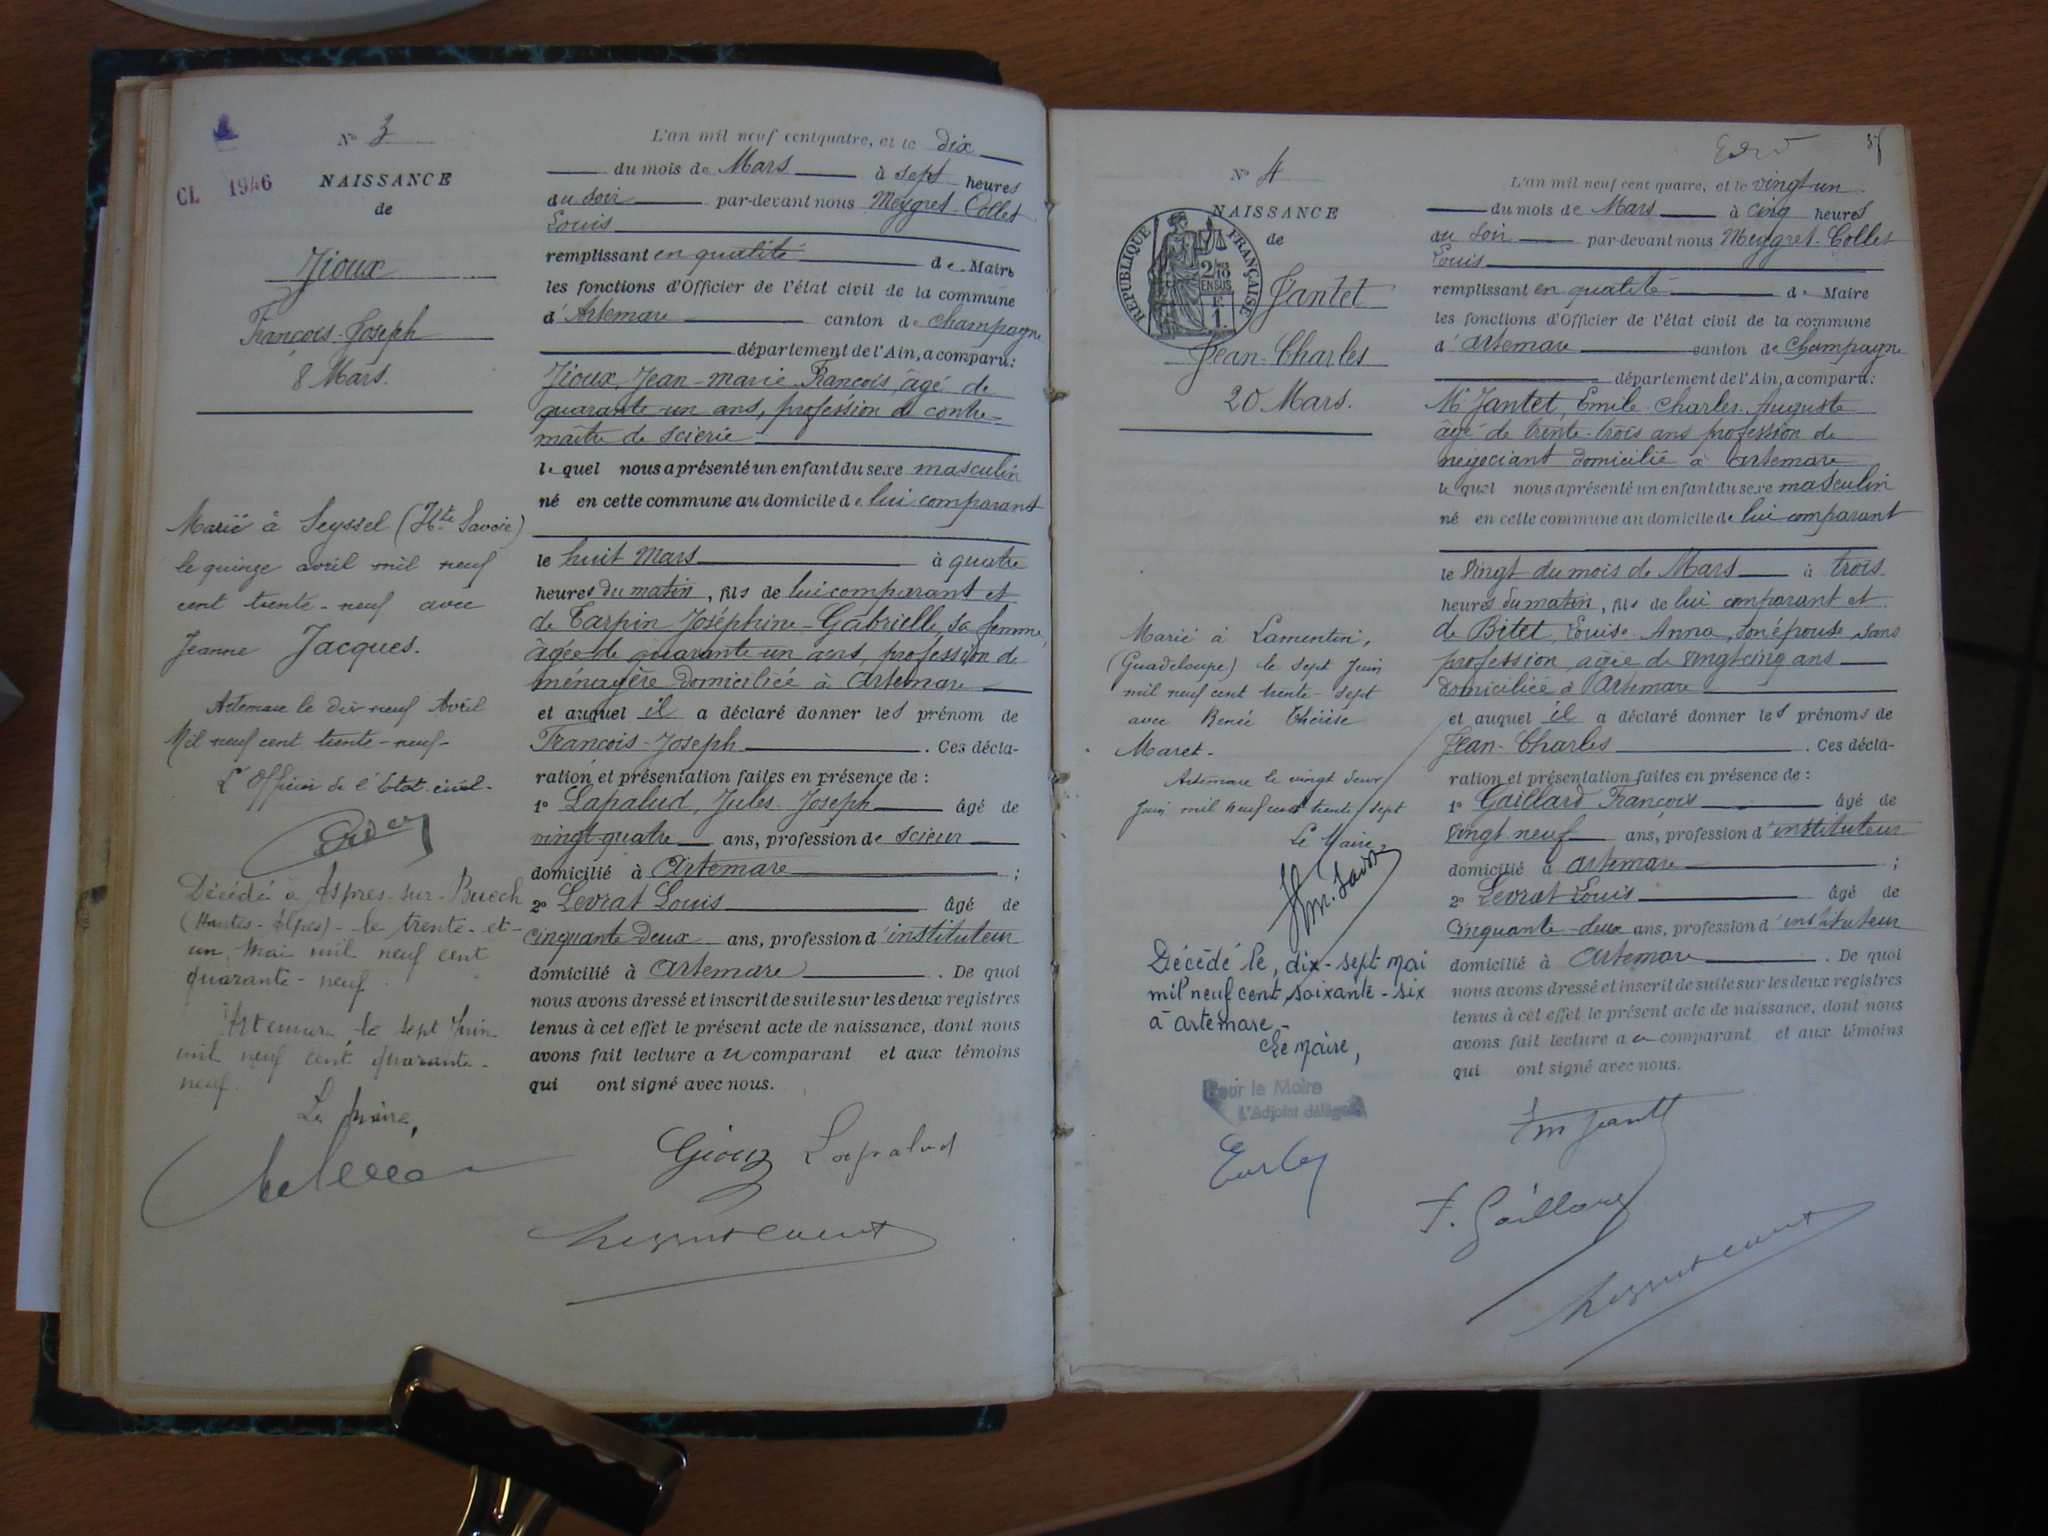 CL 1946
N° 3
NAISSANCE
de
Jioux
François-Joseph
8 Mars.
Marié à Seyssel (Hte Savoie)
le quinze avril mil neuf
cent trente-neuf avec
Jeanne Jacques.
Artemare le dix neuf Avril
Mil neuf cent trente-neuf-
L'Officier de l'Etat-civil-
Décédé à Aspres-sur-Buech
(Hautes-Alpes)- le trente-et-
un Mai mil neuf cent
quarante-neuf.
Artemare, le sept Juin
mil neuf cent quarante-
neuf.
Le Maire,
L'an mil neuf cent quatre, et le dix
du mois de Mars à sept heures
du soir par-devant nous Meygret-Collet
Louis
remplissant en qualité de Maire
les fonctions d'Officier de l'état civil de la commune
d'Artemare canton de Champagne
département de l'Ain, a comparu:
Jioux, Jean-marie-François, âgé de
quarante-un ans, profession de contre-
maître de scierie
lequel nous a présenté un enfant du sexe masculin
né en cette commune au domicile de lui comparant
le huit Mars à quatre
heures du matin, fils de lui comparant et
de Tarpin Joséphine-Gabrielle, sa femme,
âgée de quarante-un ans, profession de
ménagère domiciliée à Artemare
et auquel il a déclaré donner les prénom de
François-Joseph. Ces décla-
ration et présentation faites en présence de :
1° Lapalud, Jules-Joseph âgé de
vingt-quatre ans, profession de scieur
domicilié à Artemare ;
2° Levrat Louis âgé de
cinquante deux ans, profession d'instituteur
domicilié à Artemare. De quoi
nous avons dressé et inscrit de suite sur les deux registres
tenus à cet effet le présent acte de naissance, dont nous
avons fait lecture au comparant et aux témoins
qui ont signé avec nous.
Gioux Lapalud
N° 4
NAISSANCE
de
RÉPUBLIQUE FRANÇAISE
2/10
EN SUS
1
Jantet
Jean-Charles
20 Mars.
Marié à Lamentin,
(Guadeloupe) le sept Juin
mil neuf cent trente-sept
avec Renée Thérèse
Maret.
Artemare le vingt deux
Juin mil neuf cent trente sept
Le Maire,
Décédé le, dix-sept mai
mil neuf cent soixante-six
à Artemare-
Le Maire,
Pour le Maire
L'Adjoint délégué
L'an mil neuf cent quatre, et le vingt un
du mois de Mars à cinq heures
du soir par-devant nous Meygret-Collet
Louis
remplissant en qualité de Maire
les fonctions d'Officier de l'état civil de la commune
d'Artemare canton de Champagne
département de l'Ain, a comparu:
Mr Jantet, Emile-Charles-Auguste
âgé de trente-trois ans profession de
négociant domicilié à Artemare
lequel nous a présenté un enfant du sexe masculin
né en cette commune au domicile de lui comparant
le vingt du mois de Mars à trois
heures du matin, fils de lui comparant et
de Bitet, Louise-Anna, son épouse, sans
profession, agée de vingt-cinq ans
domiciliée à Artemare
et auquel il a déclaré donner les prénoms de
Jean-Charles. Ces décla-
ration et présentation faites en présence de :
1° Gaillard François âgé de
vingt neuf ans, profession d'instituteur
domicilié à Artemare ;
2° Levrat Louis âgé de
Cinquante-deux ans, profession d'instituteur
domicilié à Artemare. De quoi
nous avons dressé et inscrit de suite sur les deux registres
tenus à cet effet le présent acte de naissance, dont nous
avons fait lecture au comparant et aux témoins
qui ont signé avec nous.
F. Gaillard